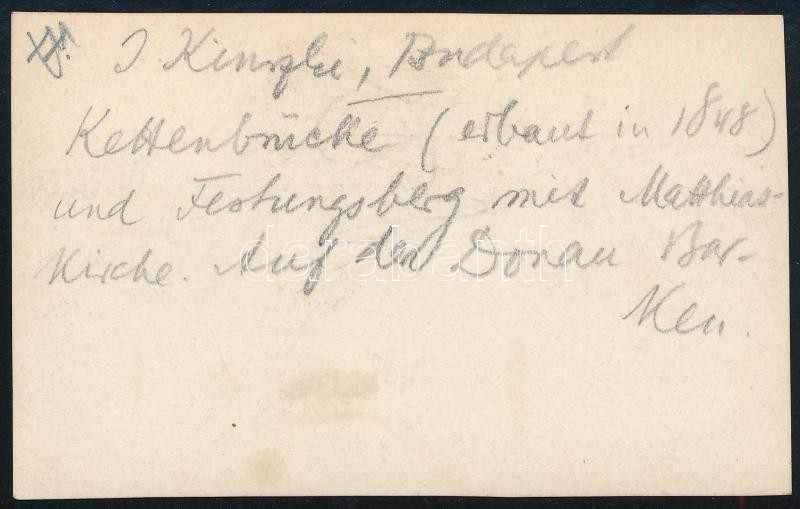 J Kinszki, Budapest
Kettenbrücke (erbaut in 1848)
und Festungsberg mit Matthias-
Kirche. Auf der Donau Bar-
ken.
darabanth